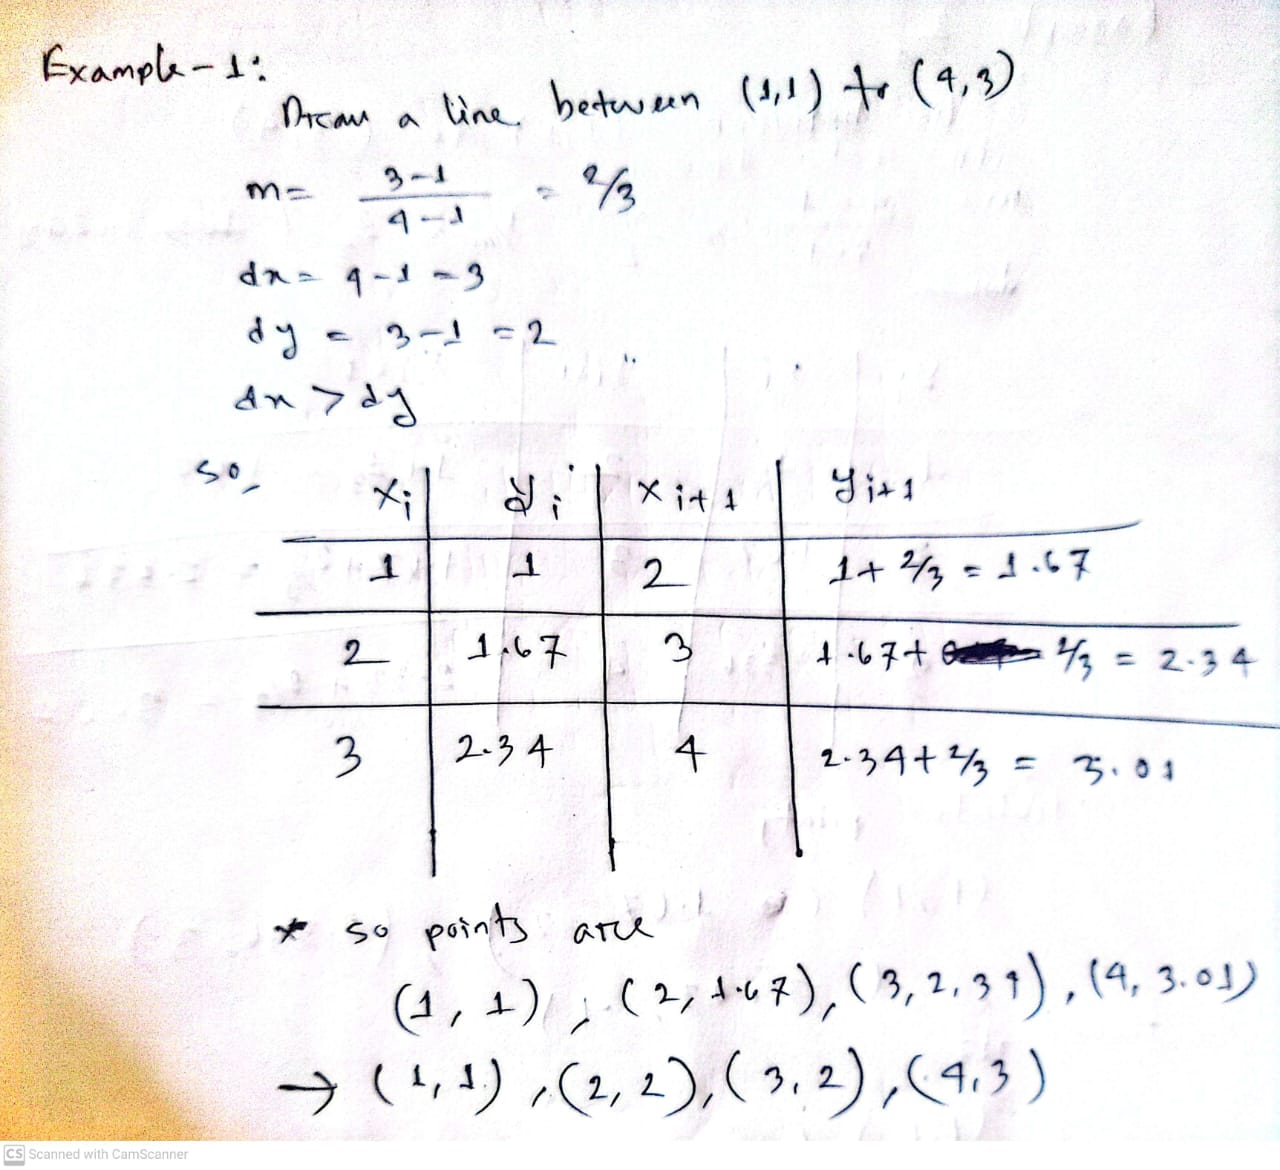 Example-1:
Draw a line between (1,1) to (4,3)
m= 3-1 / 4-1 = 2/3
dx= 4-1 = 3
dy = 3-1 = 2
dx > dy
so,
xi | yi | xi+1 | yi+1
1 | 1 | 2 | 1+ 2/3 = 1.67
2 | 1.67 | 3 | 1.67+ 2/3 = 2.34
3 | 2.34 | 4 | 2.34+ 2/3 = 3.01
* so points are
(1, 1), (2, 1.67), (3, 2.34), (4, 3.01)
→ (1, 1), (2, 2), (3, 2), (4,3)
CS Scanned with CamScanner